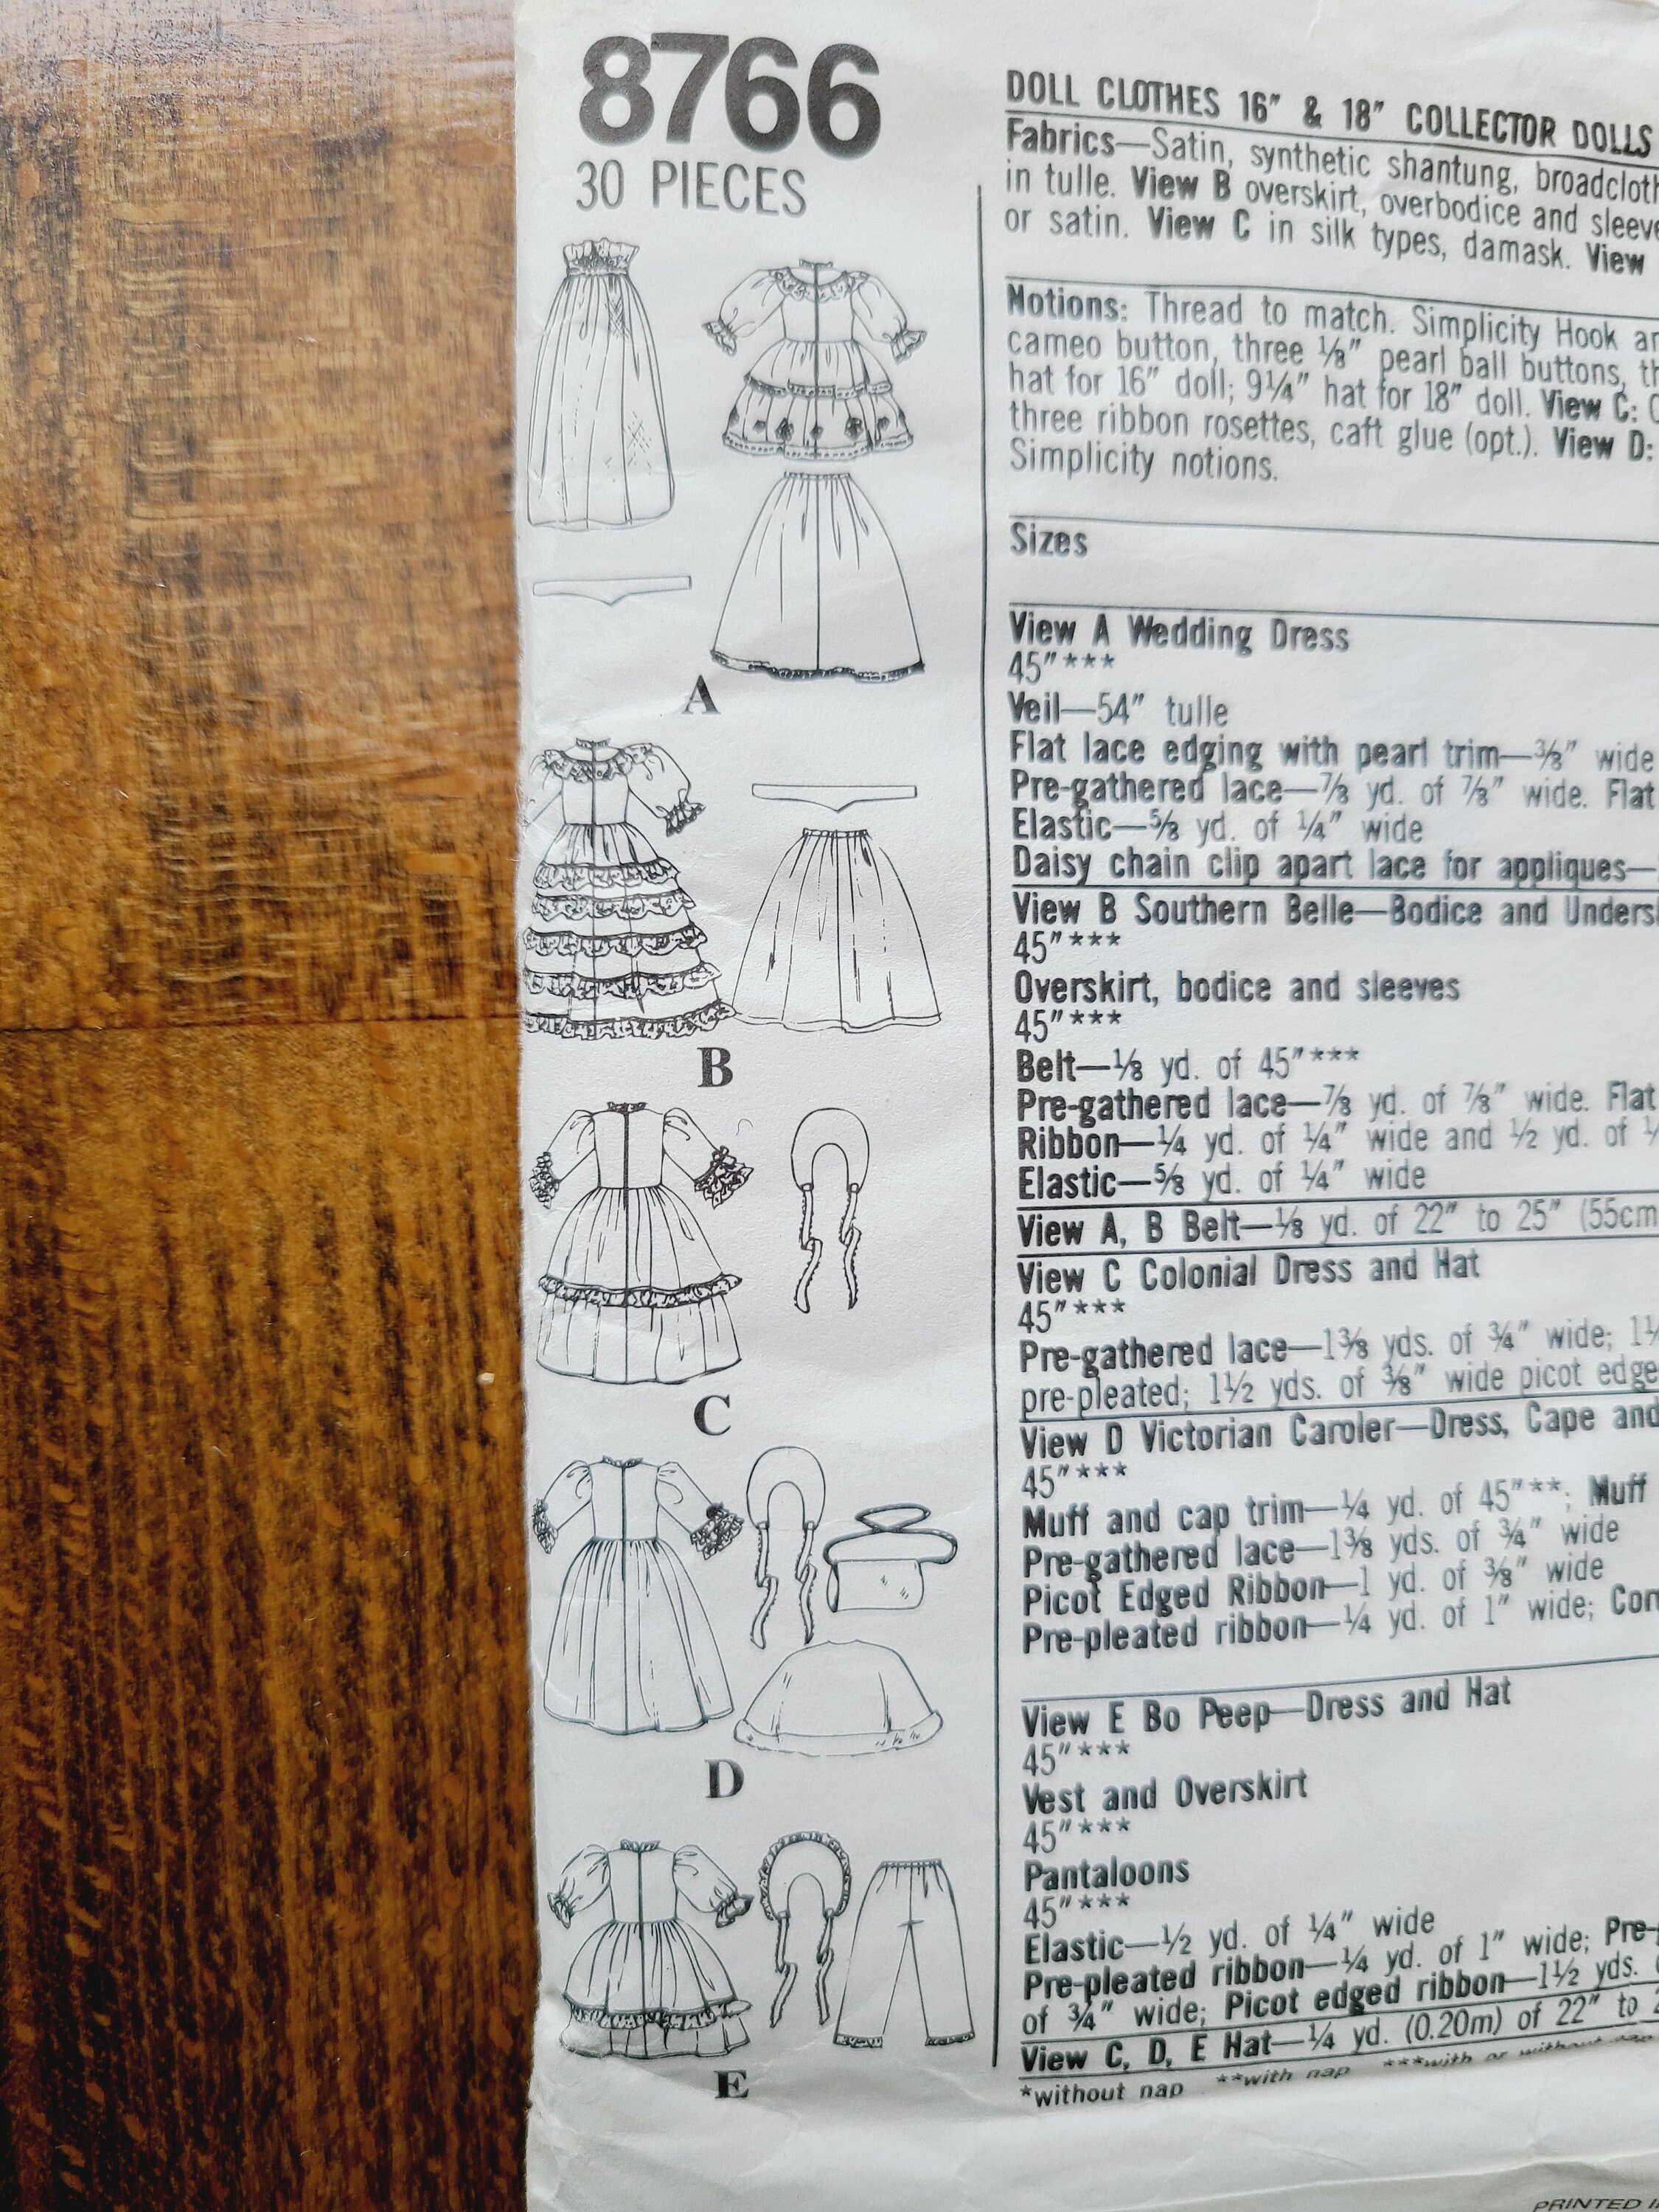 8766
30 PIECES
A
B
C
D
E
DOLL CLOTHES 16" & 18" COLLECTOR DOLLS
Fabrics—Satin, synthetic shantung, broadcloth
in tulle. View B overskirt, overbodice and sleeve
or satin. View C in silk types, damask. View
Notions: Thread to match. Simplicity Hook
cameo button, three ⅛" pearl ball buttons,
hat for 16" doll; 9¼" hat for 18" doll. View C:
three ribbon rosettes, caft glue (opt.). View D:
Simplicity notions.
Sizes
View A Wedding Dress
45"***
Veil—54" tulle
Flat lace edging with pearl trim—⅜" wide
Pre-gathered lace—⅞ yd. of ⅞" wide. Flat
Elastic—⅝ yd. of ¼" wide
Daisy chain clip apart lace for appliques—
View B Southern Belle—Bodice and Undersk
45"***
Overskirt, bodice and sleeves
45"***
Belt—⅛ yd. of 45"***
Pre-gathered lace—⅞ yd. of ⅞" wide. Flat
Ribbon—¼ yd. of ¼" wide and ½ yd. of
Elastic—⅝ yd. of ¼" wide
View A, B Belt—⅛ yd. of 22" to 25" (55cm
View C Colonial Dress and Hat
45"***
Pre-gathered lace—1⅜ yds. of ¾" wide;
pre-pleated; 1½ yds. of ⅜" wide picot edge
View D Victorian Caroler—Dress, Cape and
45"***
Muff and cap trim—¼ yd. of 45"**; Muff
Pre-gathered lace—1⅜ yds. of ¾" wide
Picot Edged Ribbon—1 yd. of ⅜" wide
Pre-pleated ribbon—¼ yd. of 1" wide;
View E Bo Peep—Dress and Hat
45"***
Vest and Overskirt
45"***
Pantaloons
45"***
Elastic—½ yd. of ¼" wide
Pre-pleated ribbon—¼ yd. of 1" wide; Pre-
of ¾" wide; Picot edged ribbon—1½ yds.
View C, D, E Hat—¼ yd. (0.20m) of 22" to
*without nap **with nap ***with or without nap
PRINTED